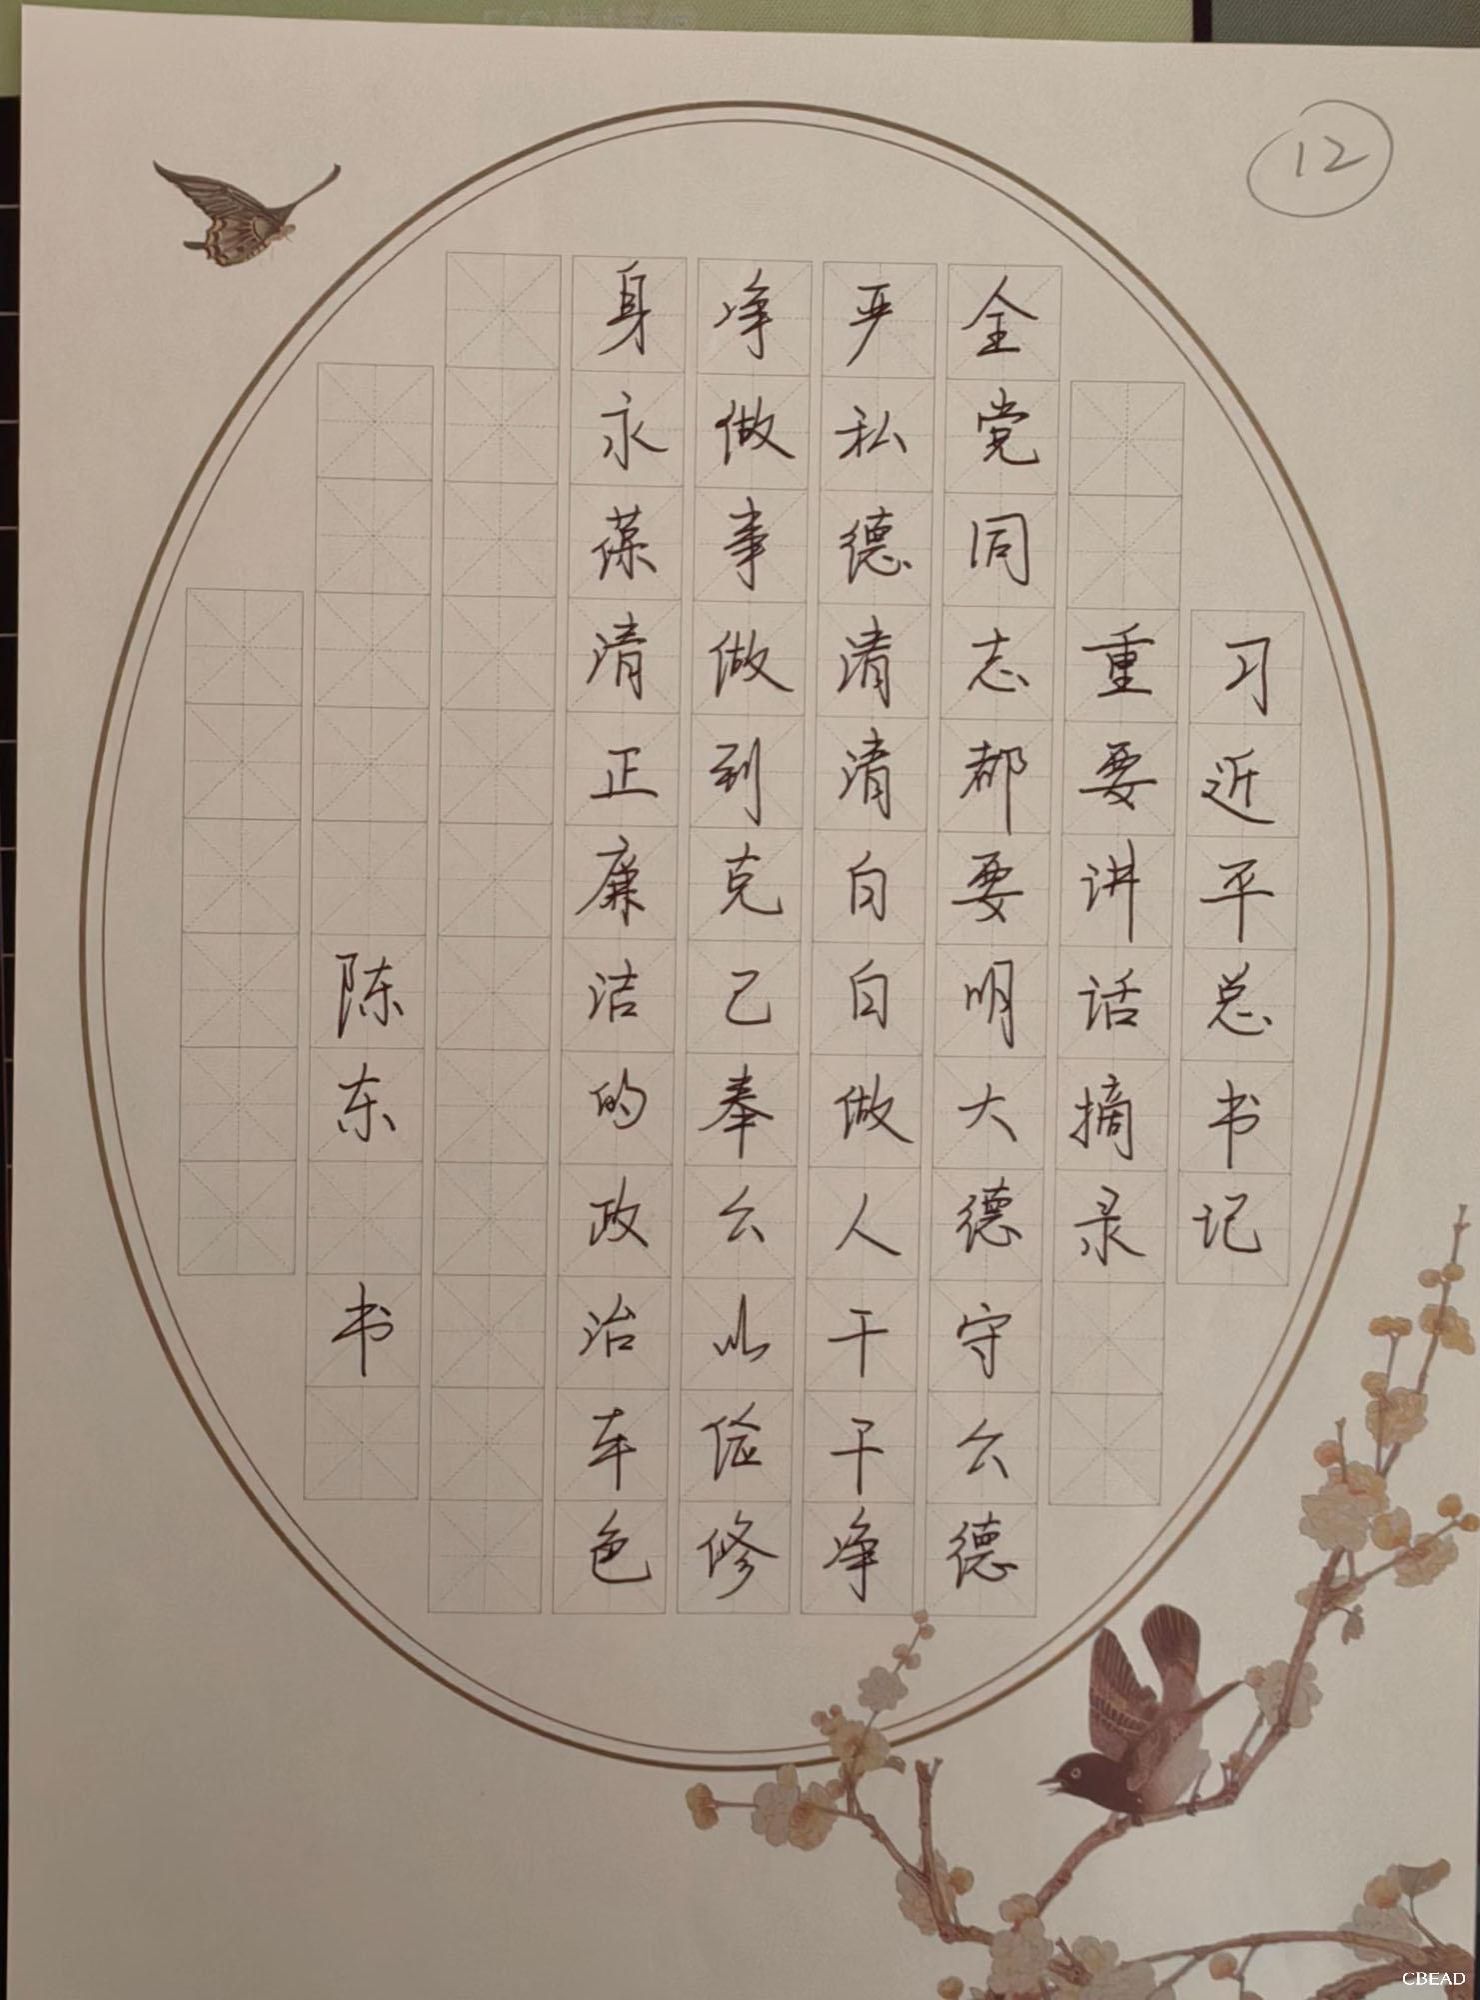 12
习近平总书记
重要讲话摘录
全党同志都要明大德守公德
严私德清清白白做人干干净
净做事做到克己奉公以俭修
身永葆清正廉洁的政治本色
陈东 书
CBEAD